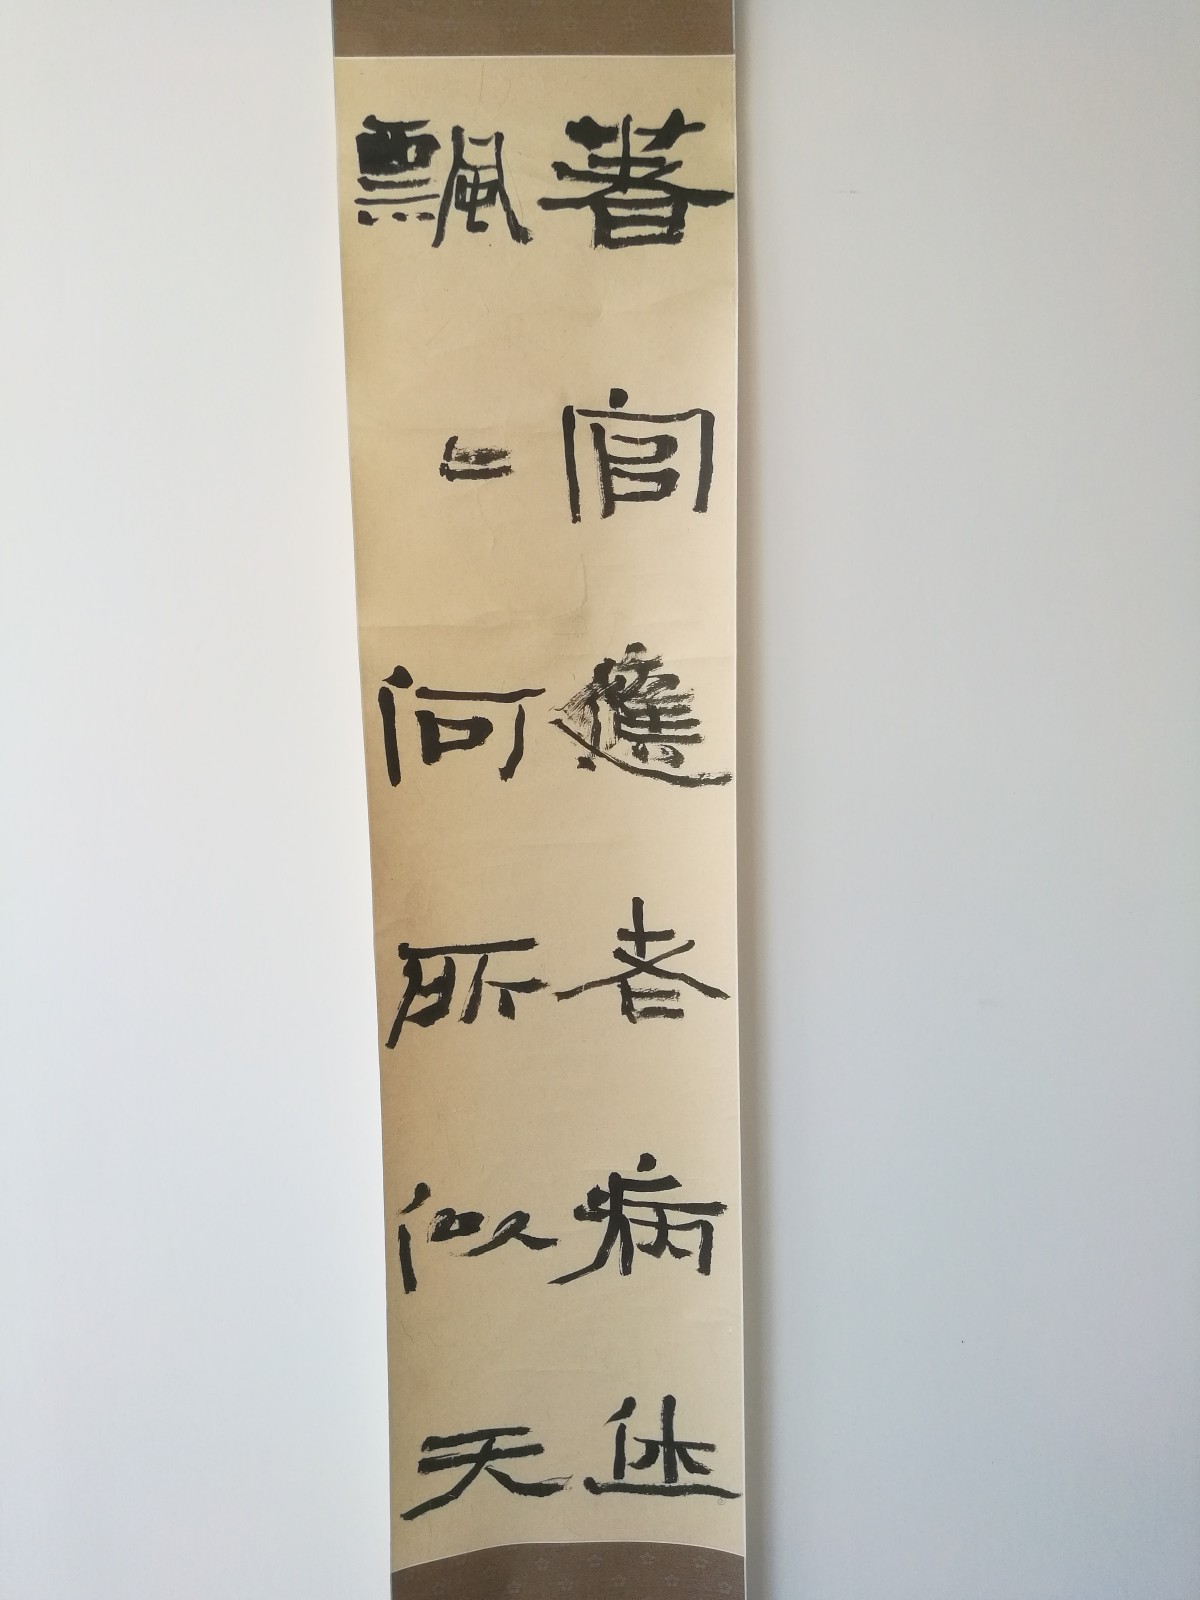 著官應老病休
飄〻何所似天